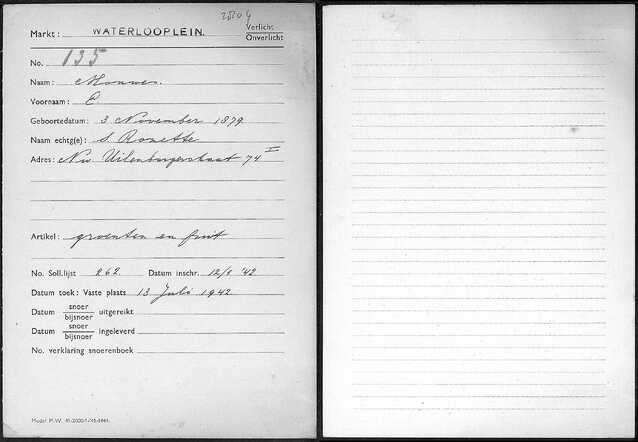 Markt: WATERLOOPLEIN. Verlicht
Onverlicht
No. 135
Naam: Mouwes.
Voornaam: E
Geboortedatum: 3 November 1879
Naam echtg(e): S. Rosette
Adres: Nw Uilenburgerstraat 74 I
Artikel: groenten en fruit
No. Soll.lijst 262 Datum inschr. 12/5 '42
Datum toek: Vaste plaats 13 Juli 1942
Datum snoer
bijsnoer uitgereikt
Datum snoer
bijsnoer ingeleverd
No. verklaring snoerenboek
Model M.W.